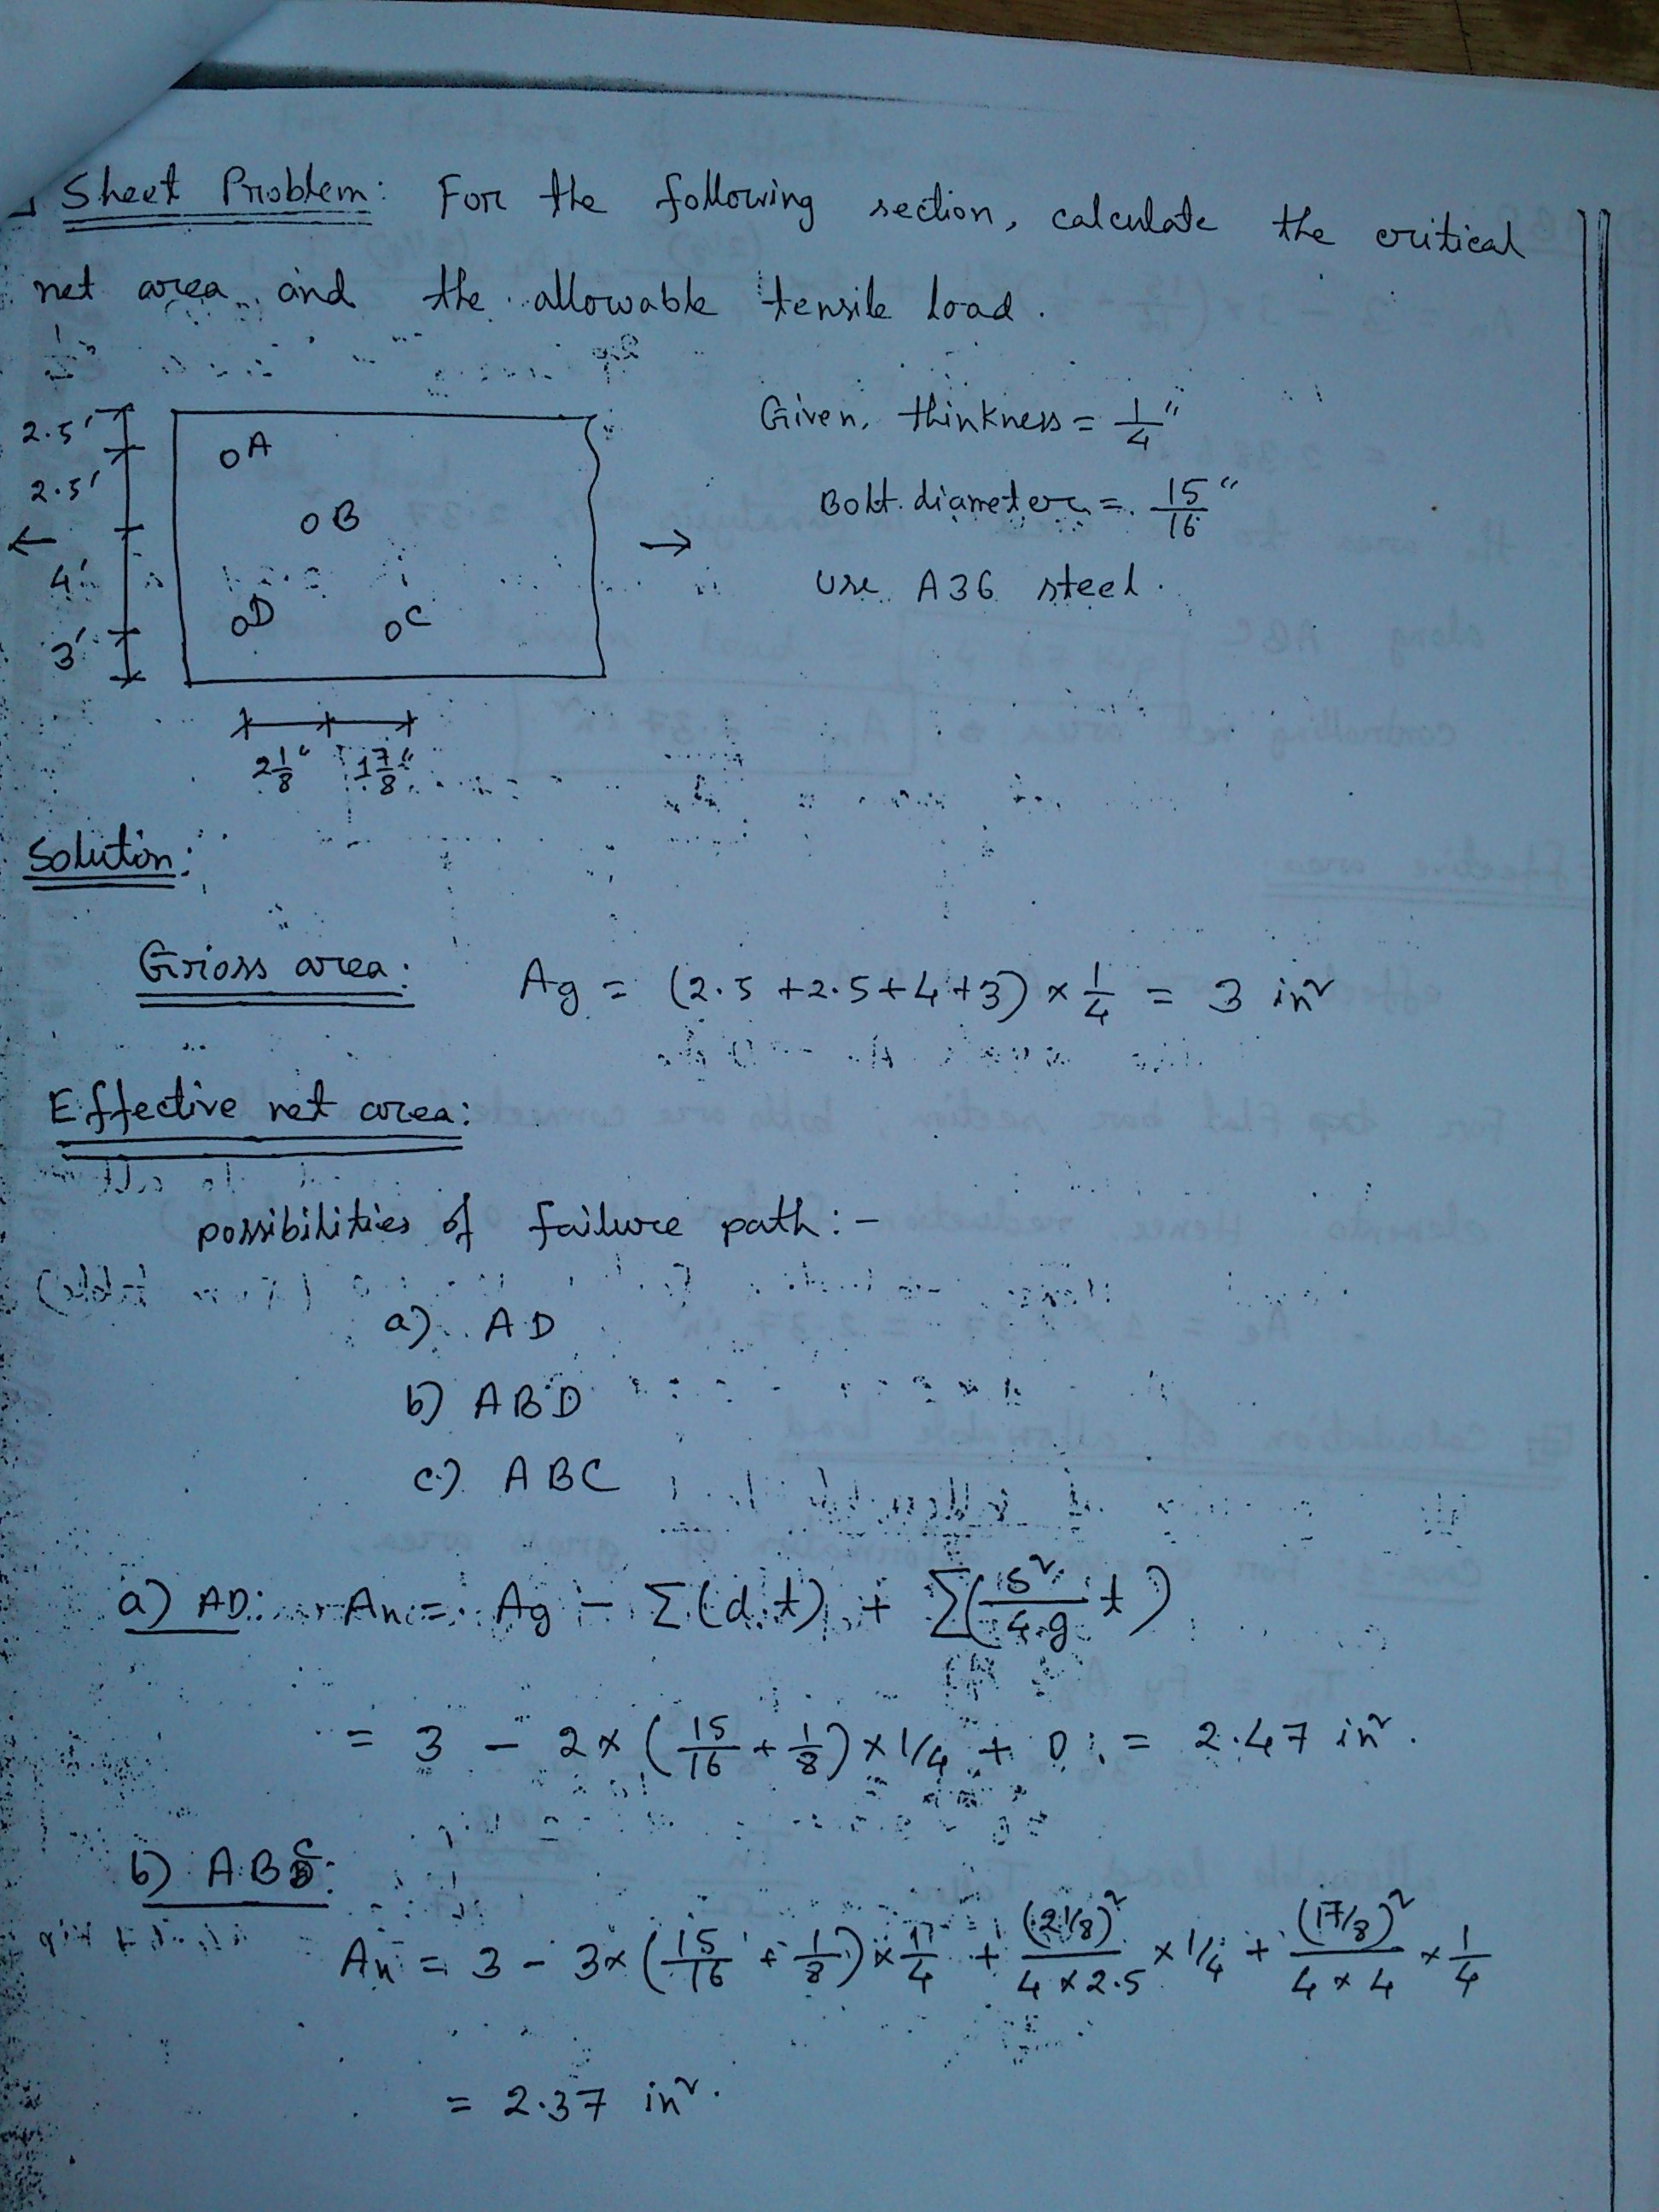 Sheet Problem: For the following section, calculate the critical
net area and the allowable tensile load.
2.5'
2.5'
4'
3'
A
B
D
C
2 1/8" 1 7/8"
Given, thinkness = 1/4"
Bolt diameter = 15/16"
Use A36 steel.
Solution:
Gross area: Ag = (2.5 + 2.5 + 4 + 3) × 1/4 = 3 in²
Effective net area:
possibilities of failure path: -
a) AD
b) ABD
c) ABC
a) AD: An = Ag - Σ(d.t) + Σ(s²/4.g t)
= 3 - 2× (15/16 + 1/8) × 1/4 + 0 = 2.47 in².
b) ABC:
An = 3 - 3× (15/16 + 1/8) × 1/4 + (2 1/8)²/4×2.5 × 1/4 + (1 7/8)²/4×4 × 1/4
= 2.37 in².